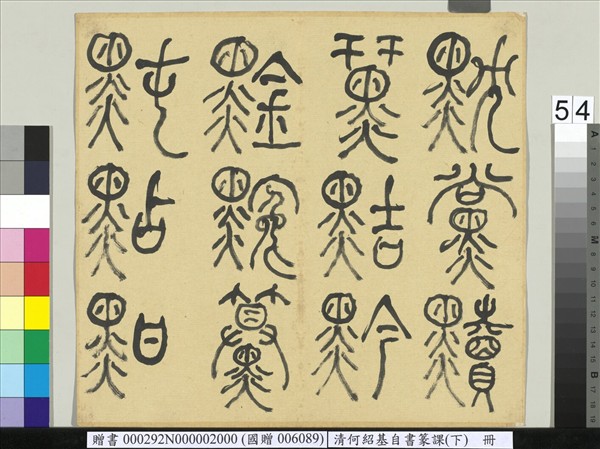 黕黨黷
黠黔
黗點黚
54
贈書 000292N000002000 (國贈 006089) 清何紹基自書篆課(下) 冊